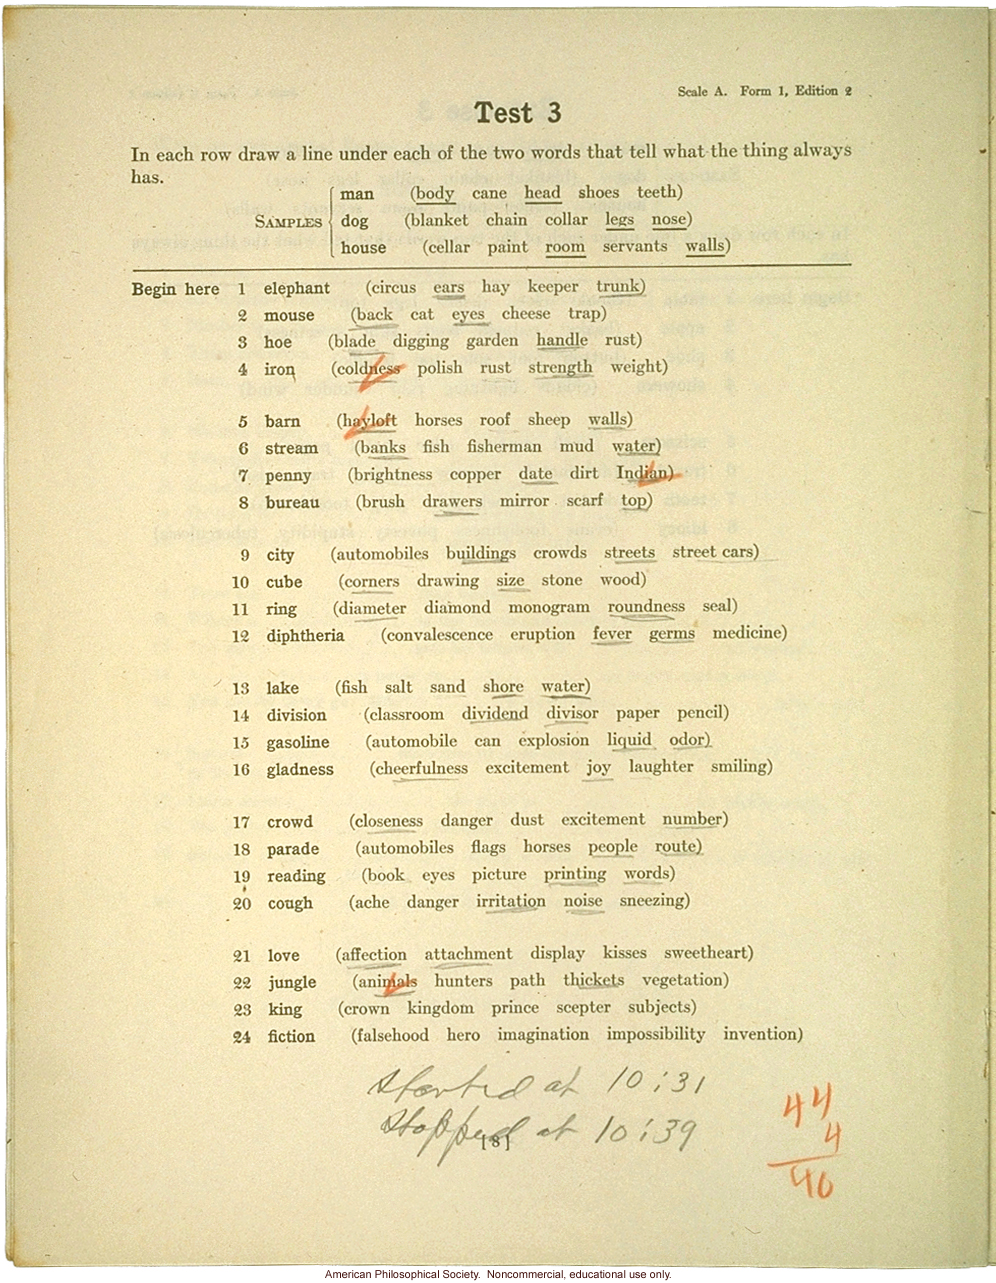 Scale A. Form 1, Edition 2
Test 3
In each row draw a line under each of the two words that tell what the thing always
has.
SAMPLES
man (body cane head shoes teeth)
dog (blanket chain collar legs nose)
house (cellar paint room servants walls)
Begin here 1 elephant (circus ears hay keeper trunk)
2 mouse (back cat eyes cheese trap)
3 hoe (blade digging garden handle rust)
4 iron (coldness polish rust strength weight)
5 barn (hayloft horses roof sheep walls)
6 stream (banks fish fisherman mud water)
7 penny (brightness copper date dirt Indian)
8 bureau (brush drawers mirror scarf top)
9 city (automobiles buildings crowds streets street cars)
10 cube (corners drawing size stone wood)
11 ring (diameter diamond monogram roundness seal)
12 diphtheria (convalescence eruption fever germs medicine)
13 lake (fish salt sand shore water)
14 division (classroom dividend divisor paper pencil)
15 gasoline (automobile can explosion liquid odor)
16 gladness (cheerfulness excitement joy laughter smiling)
17 crowd (closeness danger dust excitement number)
18 parade (automobiles flags horses people route)
19 reading (book eyes picture printing words)
20 cough (ache danger irritation noise sneezing)
21 love (affection attachment display kisses sweetheart)
22 jungle (animals hunters path thickets vegetation)
23 king (crown kingdom prince scepter subjects)
24 fiction (falsehood hero imagination impossibility invention)
Started at 10:31
Stopped at 10:39
[8]
44
4
40
American Philosophical Society. Noncommercial, educational use only.